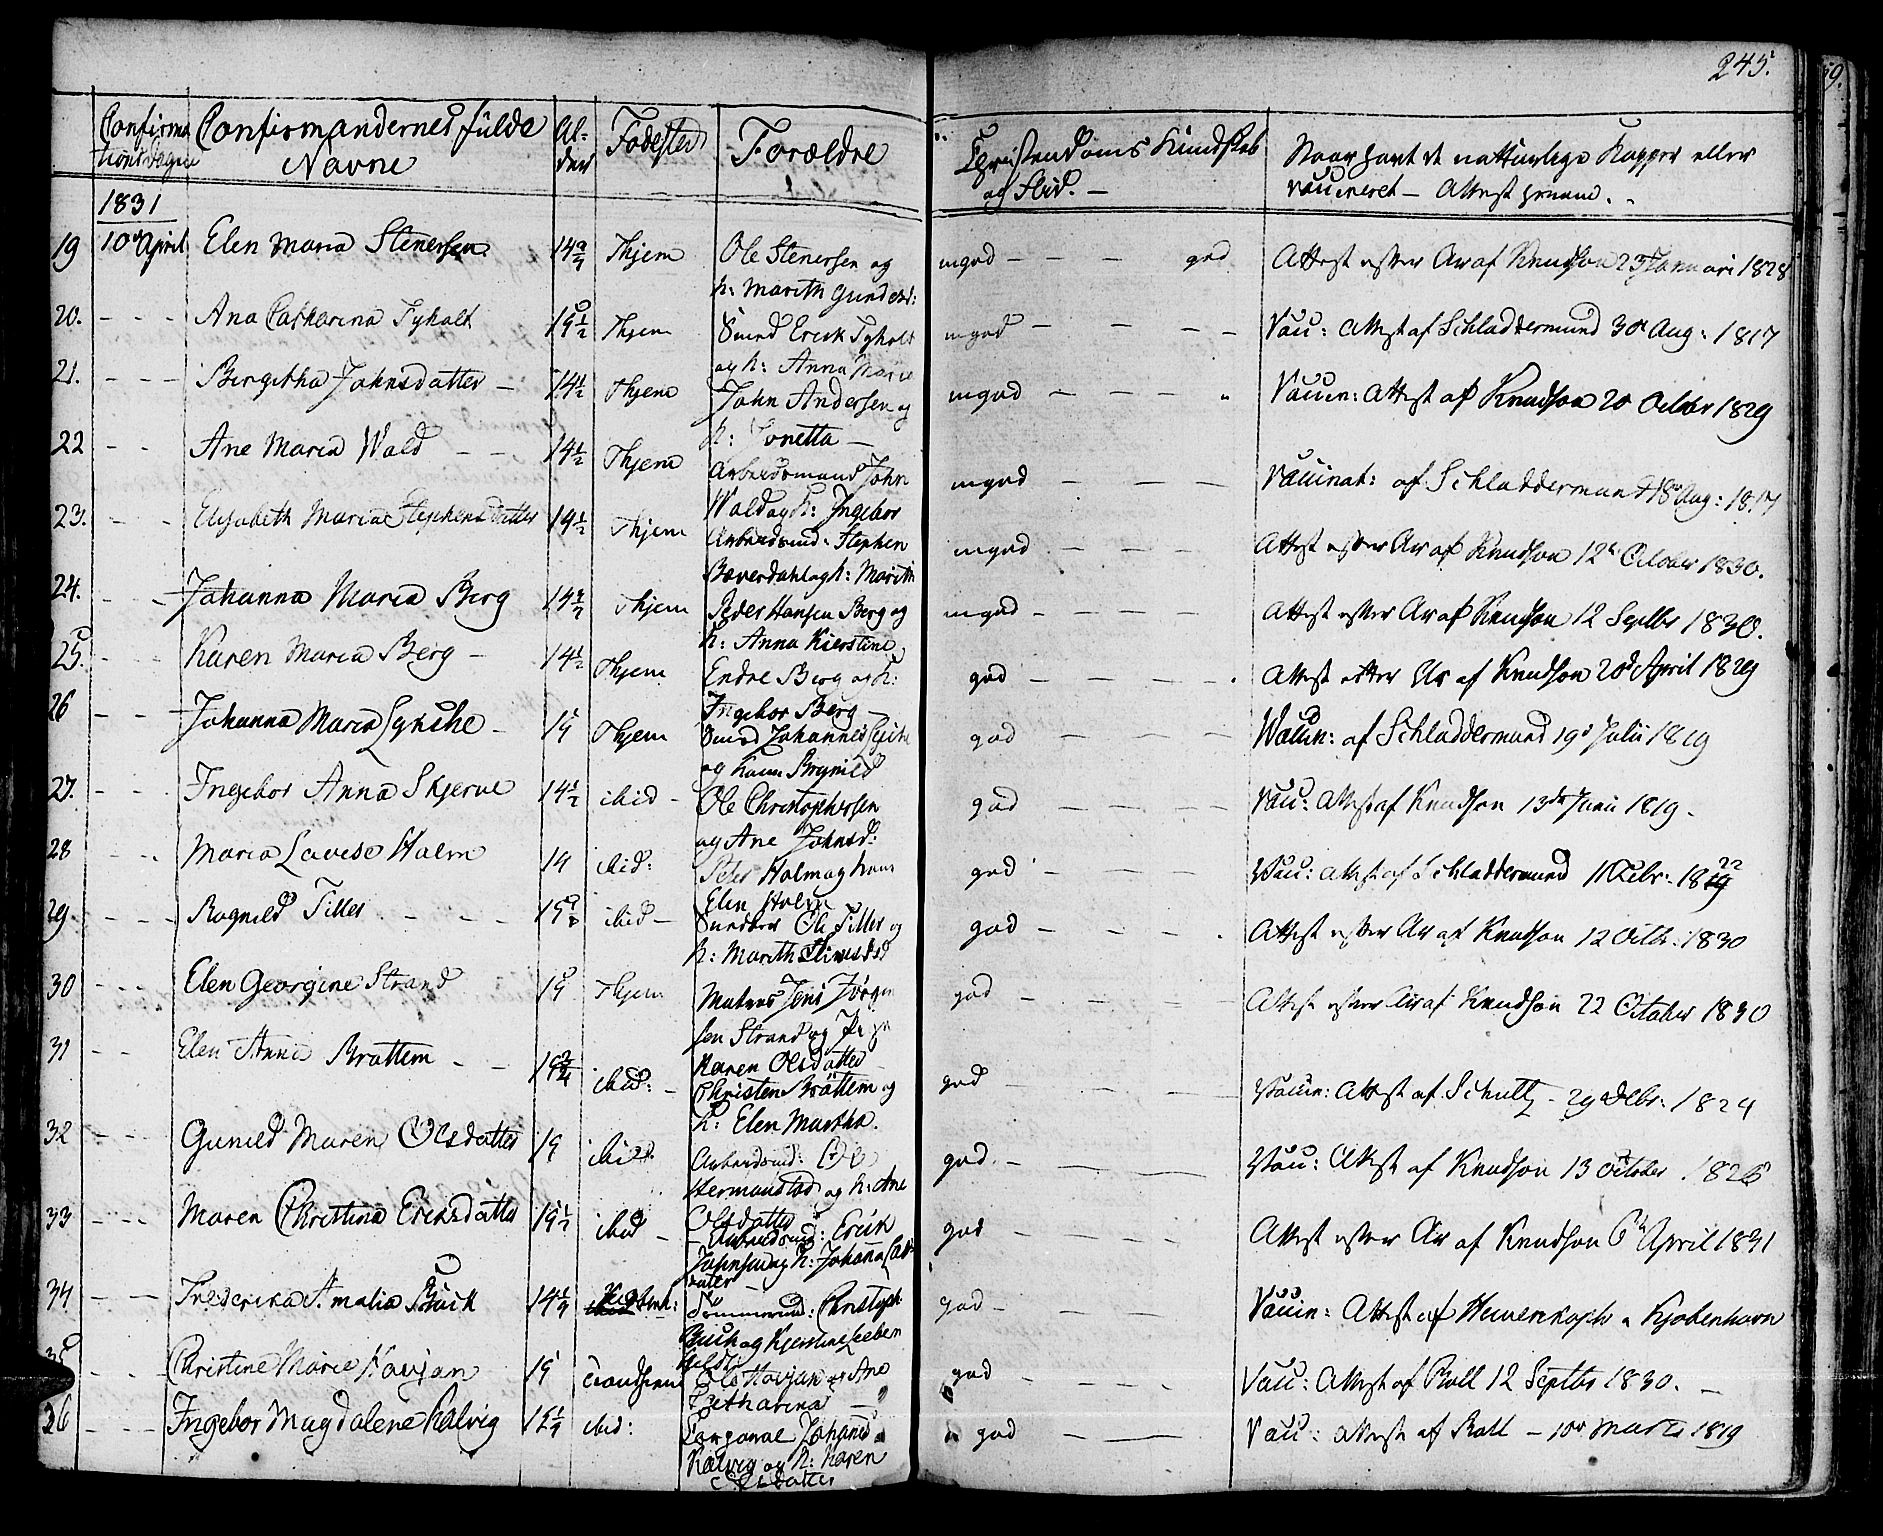 245.
Confirmationsdagen
Confirmandernes fulde Navne
Alder
Fødested
Forældre
Christendoms Kundskab og Flid. —
Naar havt de naturlige Kopper eller vaccineret — Attest herom.
1831
19 10de April Elen Maria Stenersen 14 Thjem Ole Stenersen og h: Marith Gundersd: mgod — — — god Attest efter Ar af Knudson 25 Januari 1828
20. — — — Ana Catharina Tyholt 15 1/2 Thjem Smed Erick Tyholt og h: Anna Marie mgod — — — — Vacc: Attest af Schladdermund 30d Aug: 1817
21. — — — Bergitha Johnsdatter — 14 1/2 Thjem John Andersen og h: Jonetta — mgod — — — " Vaccin: Attest af Knudson 20 October 1829
22 — — Ane Maria Wald — — 14 1/2 Thjem Arbeidsmand John Wald og h: Ingebor mgod — — — Vaccinat: af Schladdermund 18 Aug: 1817
23. — — Elisabeth Maria Stephensdatter 14 1/2 Thjem Arbeidsmd: Stephen Bæverdahl og h: Marith mgod — — — — Attest efter Ar af Knudson 12te October 1830.
24. — — — Johanna Maria Berg 14 Thjem Peder Hansen Berg og h: Anna Kierstine mgod — — — — Attest efter Ar af Knudson 12 Septbr 1830.
25. — — — Karen Maria Berg — 14 1/2 Thjem Endre Berg og h: Ingebor Berg — god — — — — Attest efter Ar af Knudson 20d April 1829
26 — — — Johanna Maria — 15 Thjem Smed Johannes og Brynild god — — — Vaccin: af Schladdermund 19d Julii 1819
27. — — — Ingebor Anna Skjerve 14 1/2 ibid — Ole Christophersen og Ane Johnsd: god — — — — Vacc: Attest af Knudson 13de Junii 1819.
28 — — Maria Lovise Holm 14 ibid: Peter Holm og hans Elen Holm god — — — Vacc: Attest af Schladdermund 11 Febr: 1822
29. — — — Ragnild Tiller — — — 15 ibid — Ole Tiller og h: Marith god — — — Attest efter Ar af Knudson 12 Octbr: 1830
30 — — — Elen Georgine Strand 15 Thjem Matros Jens Jörgensen Strand og Karen Olsdatter god — — — Attest efter Ar af Knudson 22 October 1830
31 — — Elen Anna Brattem — — 15 3/4 ibid: — Christen Bråttem og h: Elen Martha. god — — Vaccin: Attest af Schultz — 29 Decbr: 1824
32 — — Gunild Maren Olsdatter 19 ibid: Arbeidsmd: Ole Hermanstad og h: Ane Olsdatter god. — — — Vacc: Attest af Knudson 13 October 1826
33 — — — Maren Christina Ericksdatter 15 1/2 ibid — Arbeidsmd: Erick Johnsen og h: Johana god — — — — Attest efter Ar af Knudson 6te April 1831
34 — — Frederika Amalia Buck 14 1/2 Tömmermd: Christoph Buck og Kjerstine god — — — — Vaccin: Attest af i Kjøbenhavn
35 — — Christine Marie Havjan 15 Trondhiem Ole Havjan og Ane Catharina — god — — — Vacc: Attest af Roll 12 Septbr 1830. —
36 — — — Ingebor Magdalene Kalvig 15 1/2 ibid: Corporal Johans Kalvig og h: Karen god — — Vacc: Attest af Roll — 10de Marts 1819